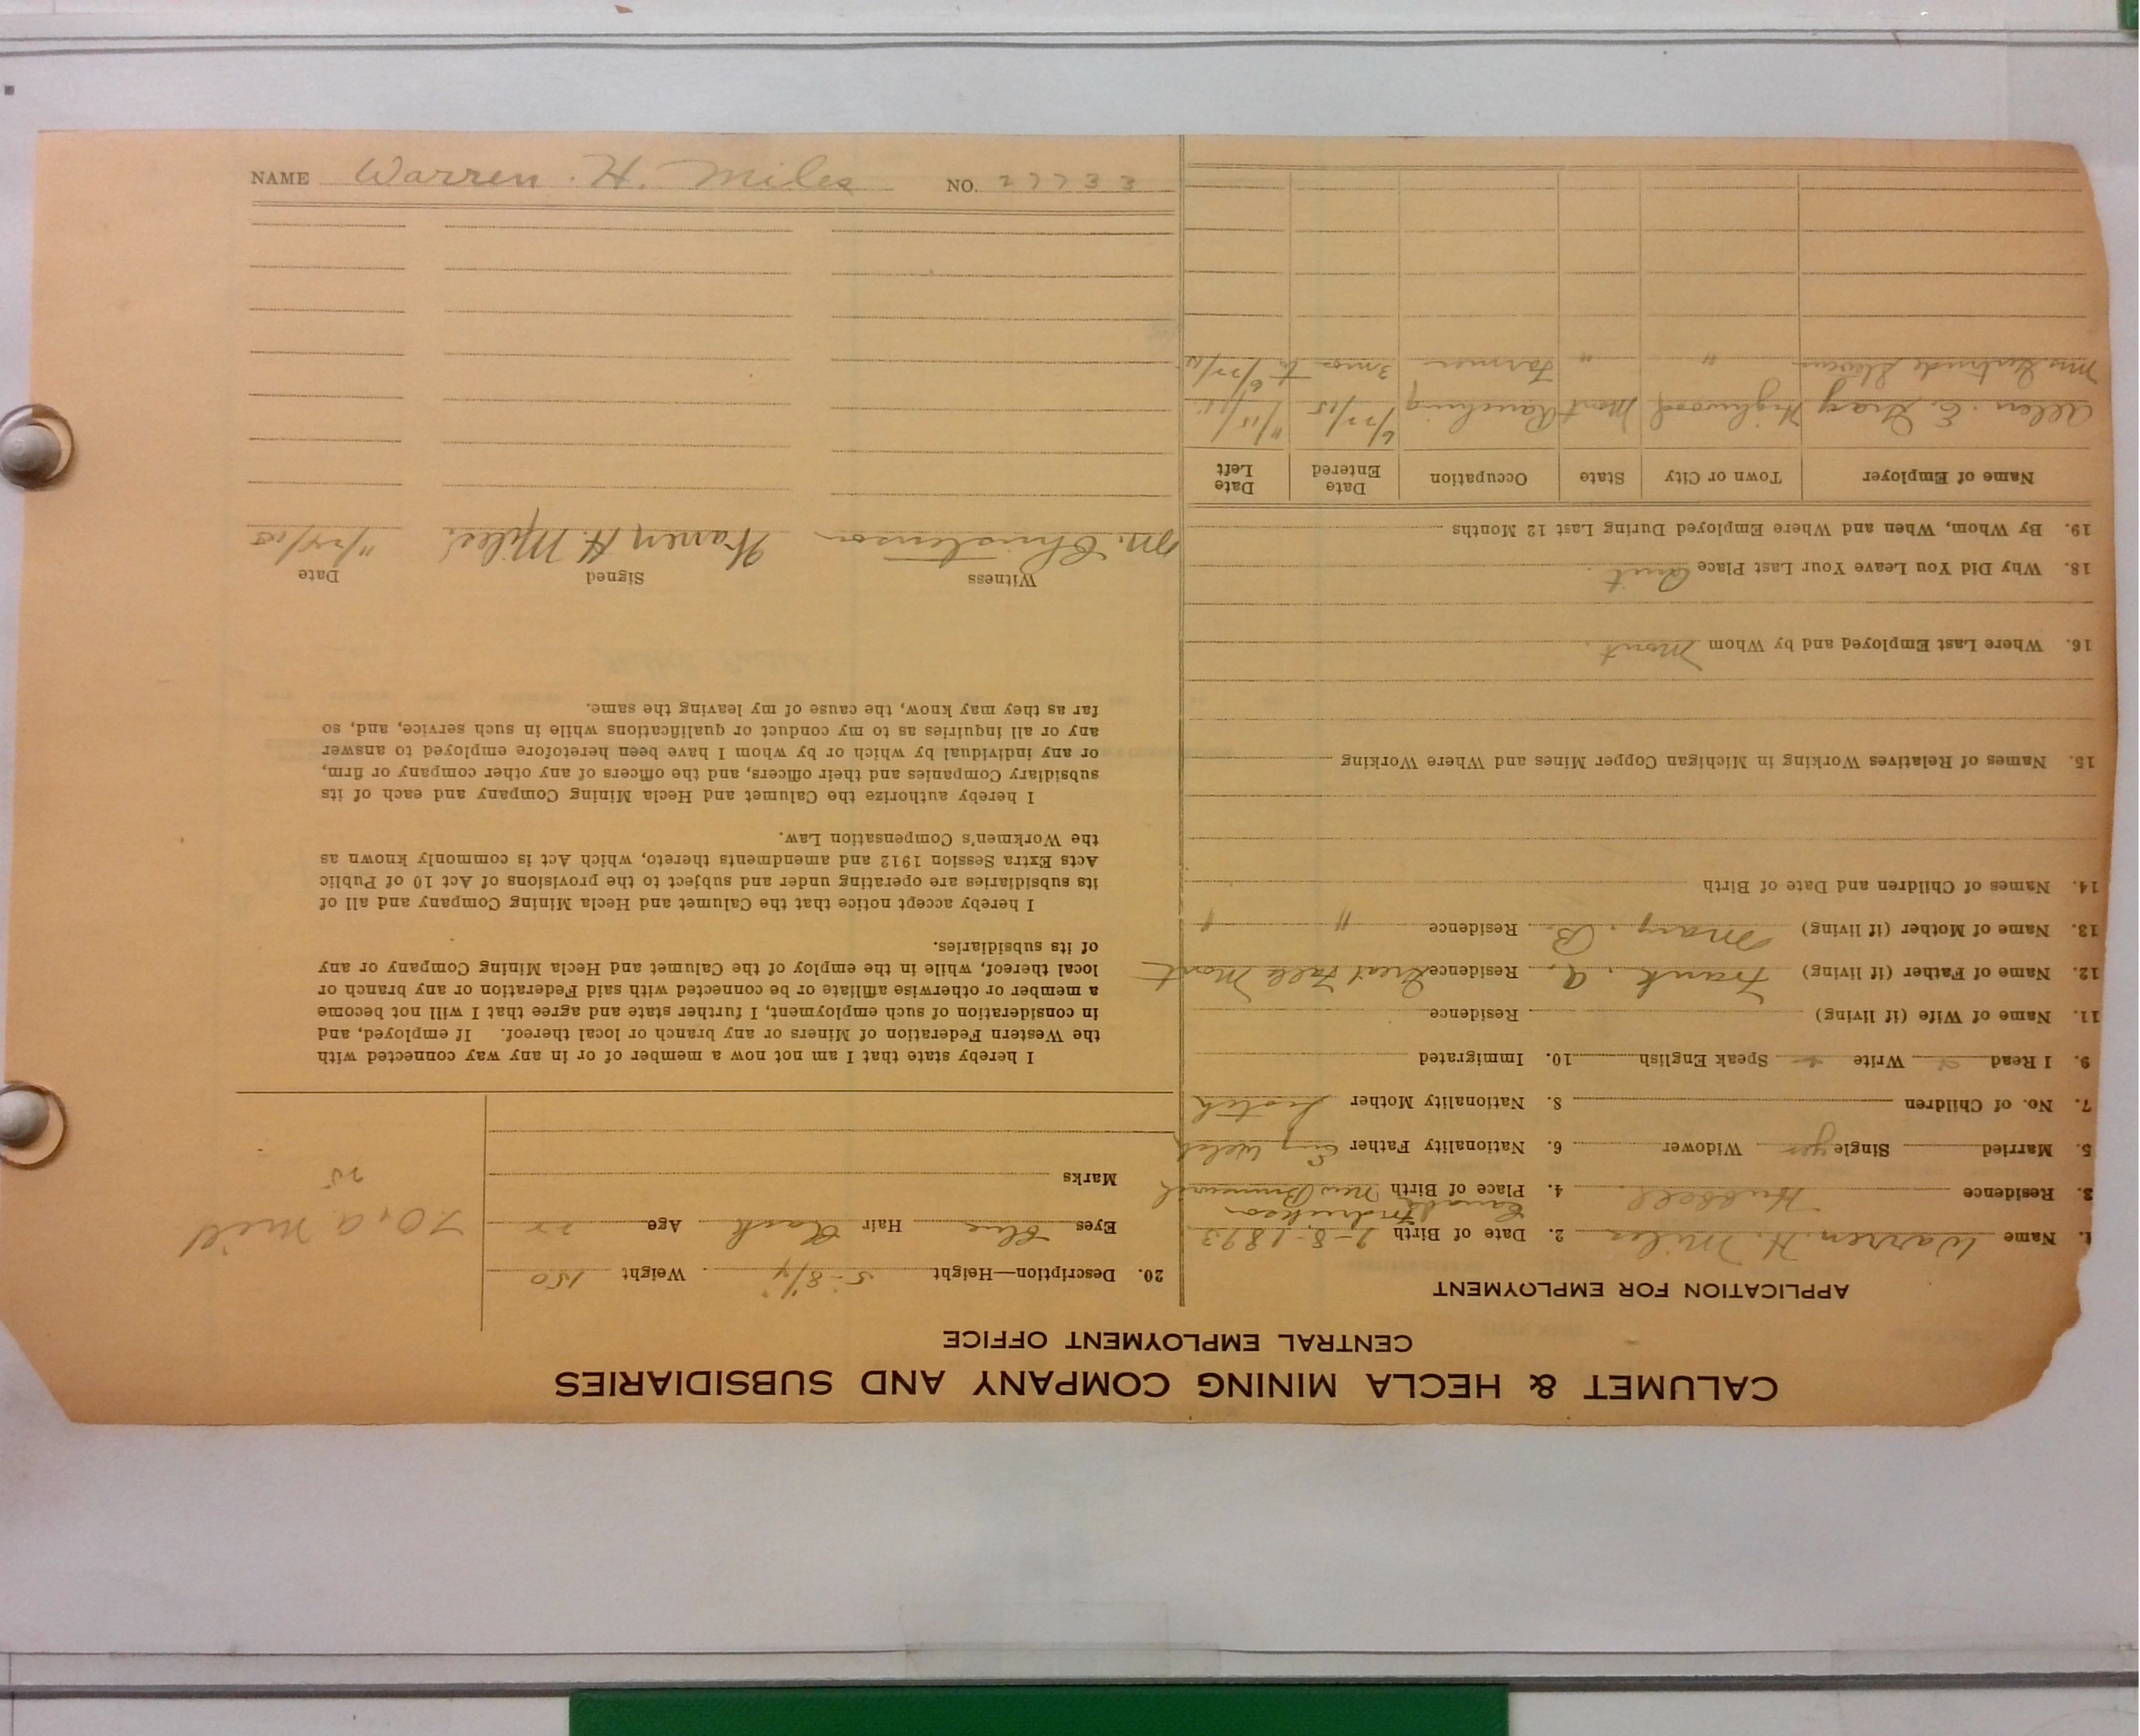 CALUMET & HECLA MINING COMPANY AND SUBSIDIARIES
CENTRAL EMPLOYMENT OFFICE
APPLICATION FOR EMPLOYMENT
1. Name Warren. H. Miles 2. Date of Birth 9-8-1893
Canada
3. Residence Hubbell 4. Place of Birth New Brunswick
5. Married Single yes Widower 6. Nationality Father Eng Welch
7. No. of Children 8. Nationality Mother Scotch
9. I Read Write Speak English 10. Immigrated
11. Name of Wife (if living) Residence
12. Name of Father (if living) Frank. A. Residence Great Falls Mont
13. Name of Mother (if living) Mary. B. Residence " "
14. Names of Children and Date of Birth
15. Names of Relatives Working in Michigan Copper Mines and Where Working
16. Where Last Employed and by Whom Mont.
18. Why Did You Leave Your Last Place Quit.
19. By Whom, When and Where Employed During Last 12 Months
Name of Employer Town or City State Occupation Date Entered Date Left
Allen. E. Gray Highwood Mont Ranching 6/22/15 11/15/15
Mrs Gertrude " " Farmer 3 mos to 6/22/15
20. Description—Height 5-8 1/4 Weight 150
Eyes Blue Hair Black Age 22
Marks
25
I hereby state that I am not now a member of or in any way connected with
the Western Federation of Miners or any branch or local thereof. If employed, and
in consideration of such employment, I further state and agree that I will not become
a member or otherwise affiliate or be connected with said Federation or any branch or
local thereof, while in the employ of the Calumet and Hecla Mining Company or any
of its subsidiaries.
I hereby accept notice that the Calumet and Hecla Mining Company and all of
its subsidiaries are operating under and subject to the provisions of Act 10 of Public
Acts Extra Session 1912 and amendments thereto, which Act is commonly known as
the Workmen's Compensation Law.
I hereby authorize the Calumet and Hecla Mining Company and each of its
subsidiary Companies and their officers, and the officers of any other company or firm,
or any individual by which or by whom I have been heretofore employed to answer
any or all inquiries as to my conduct or qualifications while in such service, and, so
far as they may know, the cause of my leaving the same.
Witness Signed Date
M. Christenson Warren H. Miles 11/24/15
NAME Warren. H. Miles NO. 27733